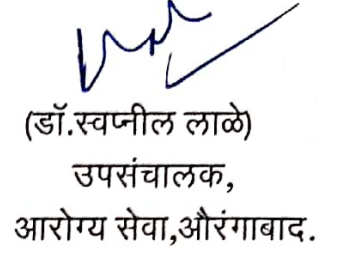 (डॉ.स्वप्नील लाळे)
उपसंचालक,
आरोग्य सेवा,औरंगाबाद.